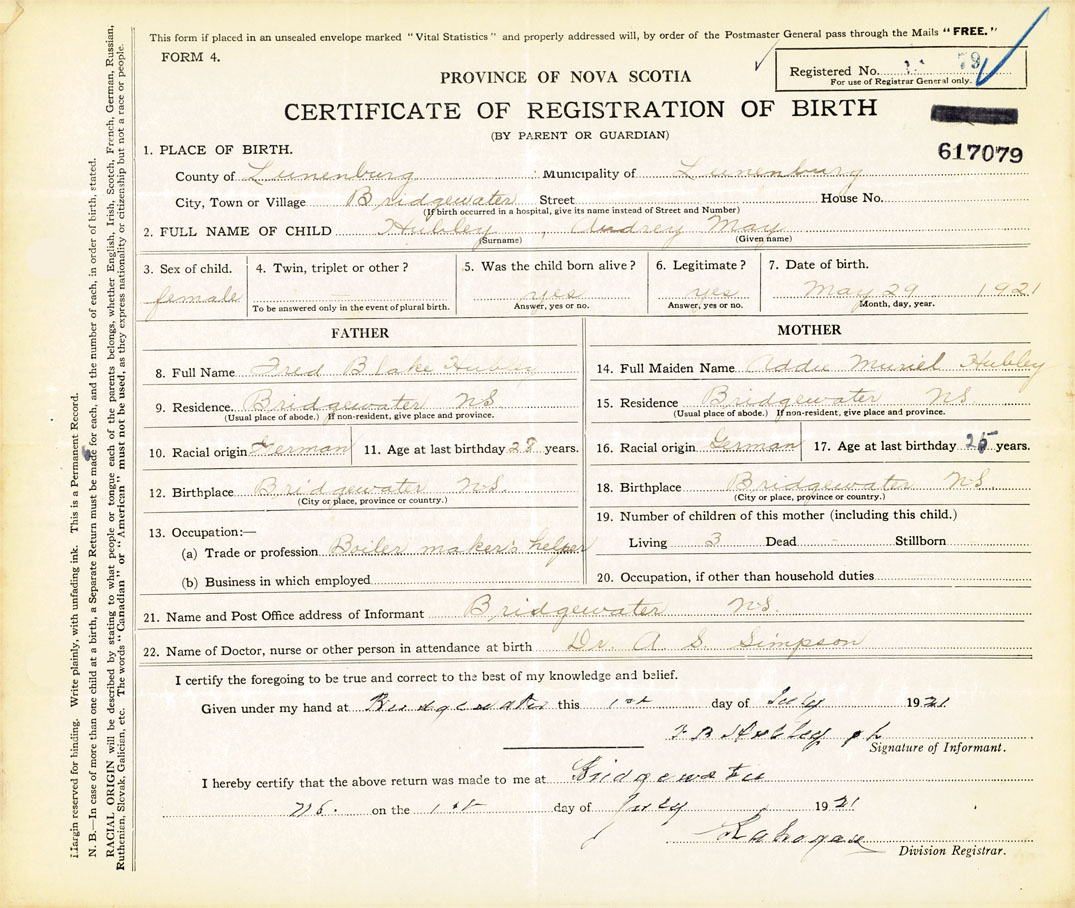 This form if placed in an unsealed envelope marked "Vital Statistics" and properly addressed will, by order of the Postmaster General pass through the Mails "FREE."
FORM 4.
Registered No. 79
For use of Registrar General only.
PROVINCE OF NOVA SCOTIA
CERTIFICATE OF REGISTRATION OF BIRTH
(BY PARENT OR GUARDIAN)
617079
1. PLACE OF BIRTH.
County of Lunenburg Municipality of Lunenburg
City, Town or Village Bridgewater Street House No.
(If birth occurred in a hospital, give its name instead of Street and Number)
2. FULL NAME OF CHILD Hubley , Audrey May
(Surname) (Given name)
3. Sex of child. 4. Twin, triplet or other? 5. Was the child born alive? 6. Legitimate? 7. Date of birth.
female yes yes May 29 1921
To be answered only in the event of plural birth. Answer, yes or no. Answer, yes or no. Month, day, year.
FATHER
8. Full Name Fred Blake Hubley
9. Residence. Bridgewater NS
(Usual place of abode.) If non-resident, give place and province.
10. Racial origin German 11. Age at last birthday 28 years.
12. Birthplace Bridgewater NS.
(City or place, province or country.)
13. Occupation:—
(a) Trade or profession Boiler maker's helper
(b) Business in which employed
MOTHER
14. Full Maiden Name Muriel Hubley
15. Residence Bridgewater NS
(Usual place of abode.) If non-resident, give place and province.
16. Racial origin German 17. Age at last birthday 25 years.
18. Birthplace Bridgewater NS
(City or place, province or country.)
19. Number of children of this mother (including this child.)
Living 3 Dead - Stillborn
20. Occupation, if other than household duties
21. Name and Post Office address of Informant Bridgewater NS.
22. Name of Doctor, nurse or other person in attendance at birth Dr. A S. Simpson
I certify the foregoing to be true and correct to the best of my knowledge and belief.
Given under my hand at Bridgewater this 1st day of July 1921
F B Hubley
Signature of Informant.
I hereby certify that the above return was made to me at Bridgewater
NS. on the 1st day of July 1921
Division Registrar.
Margin reserved for binding. Write plainly, with unfading ink. This is a Permanent Record.
N. B.—In case of more than one child at a birth, a Separate Return must be made for each, and the number of each, in order of birth, stated.
RACIAL ORIGIN will be described by stating to what people or tongue each of the parents belongs, whether English, Irish, Scotch, French, German, Russian,
Ruthenian, Slovak, Galician, etc. The words "Canadian" or "American" must not be used, as they express nationality or citizenship but not a race or people.